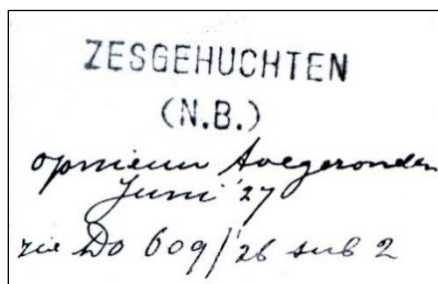 ZESGEHUCHTEN
(N.B.)
opnieuw toegezonden
Juni '27
zie Do 609/26 sub 2